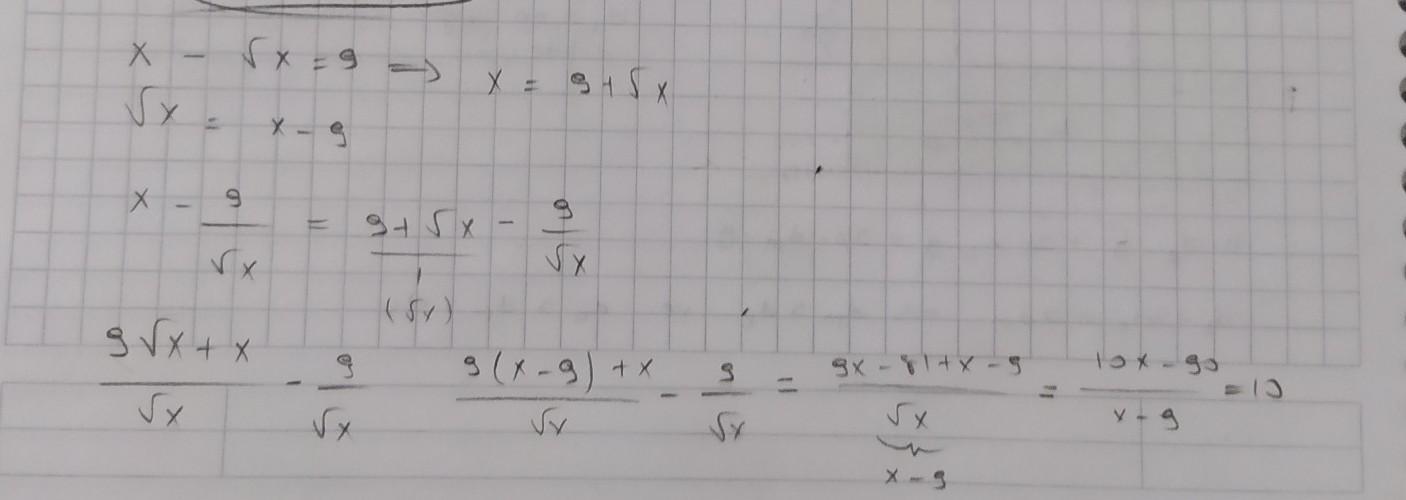 x - √x = 9 ⟹ x = 9 + √x
√x = x - 9
x - 9/√x = (9 + √x)/1 - 9/√x
(√x)
(9√x + x)/√x - 9/√x (9(x - 9) + x)/√x - 9/√x = (9x - 81 + x - 9)/√x = (10x - 90)/(x - 9) = 10
x - 9